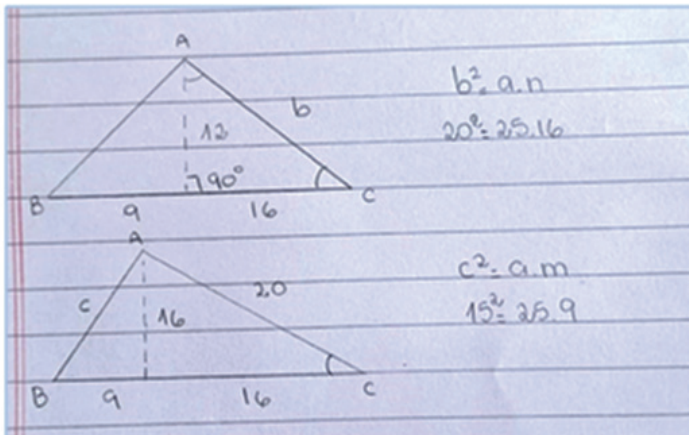 A
b
12
90°
B
9
16
C
b² = a.n
20² = 25.16
A
c
20
16
B
9
16
C
c² = a.m
15² = 25.9